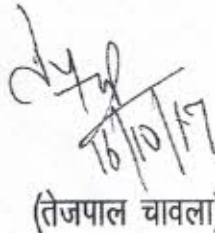 16/10/17
(तेजपाल चावला)